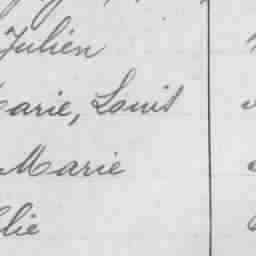 Julien
Marie, Louis
Marie